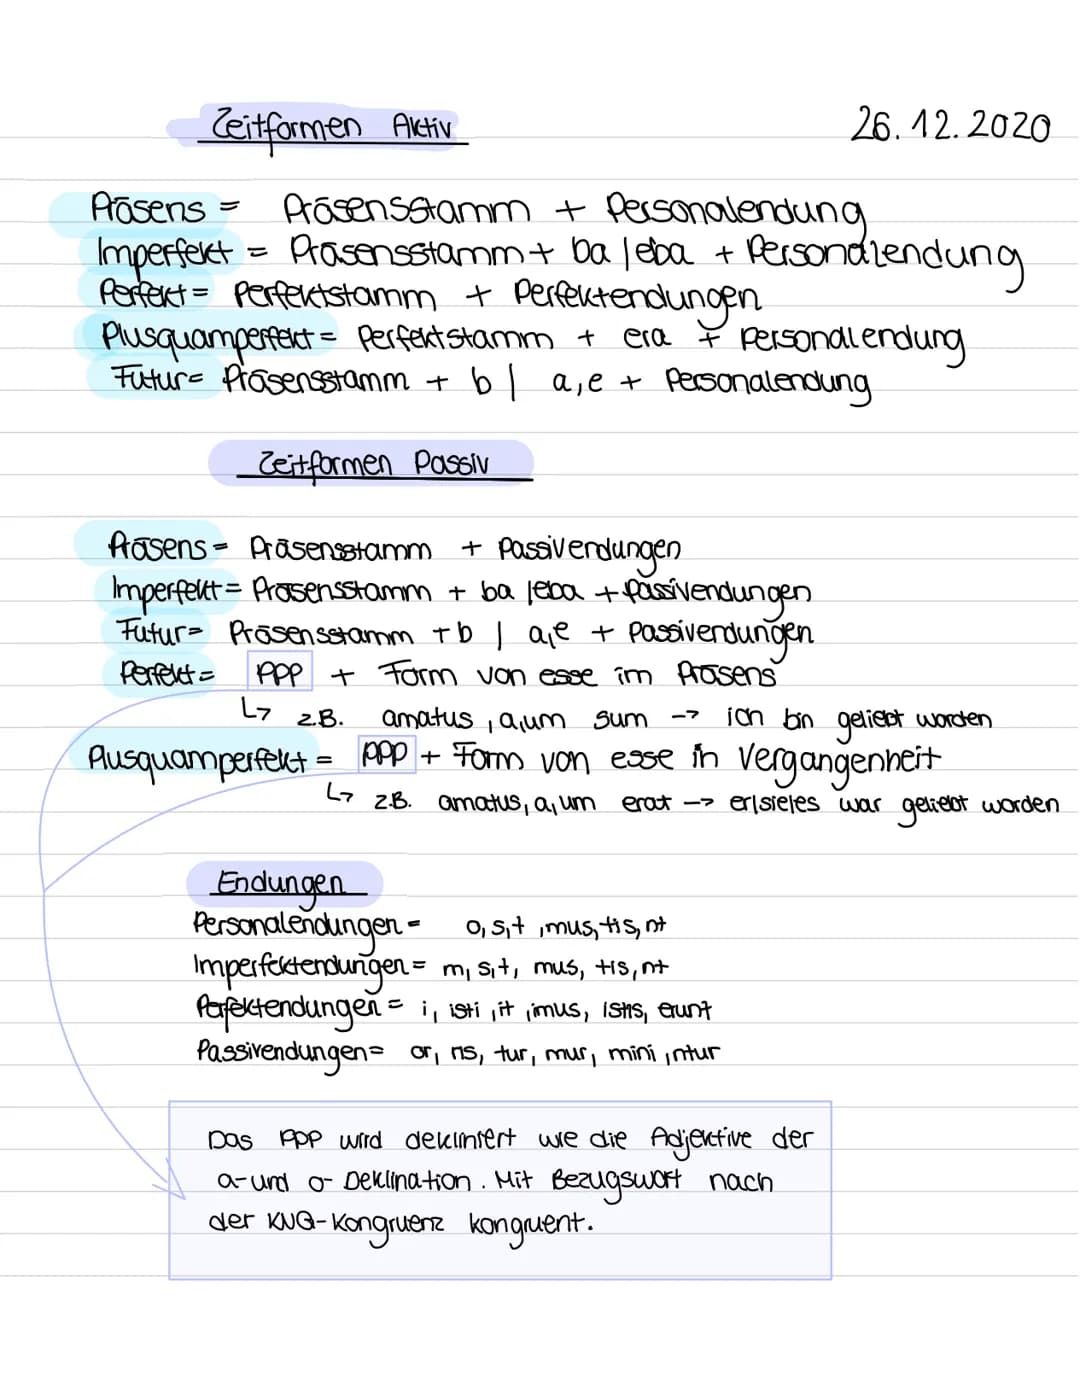 Zeitformen Aktiv
26.12.2020
Präsens = Präsensstamm + Personalendung
Imperfekt = Präsensstamm + ba/eba + Personalendung
Perfekt = Perfektstamm + Perfektendungen
Plusquamperfekt = Perfektstamm + era + Personalendung
Futur = Präsensstamm + b | a,e + Personalendung
Zeitformen Passiv
Präsens = Präsensstamm + Passivendungen
Imperfekt = Präsensstamm + ba/eba + Passivendungen
Futur = Präsensstamm + b | a,e + Passivendungen
Perfekt = PPP + Form von esse im Präsens
↳ z.B. amatus, a, um sum -> ich bin geliebt worden
Plusquamperfekt = PPP + Form von esse in Vergangenheit
↳ z.B. amatus, a, um erat -> er/sie/es war geliebt worden
Endungen
Personalendungen = o, s, t, mus, tis, nt
Imperfektendungen = m, s, t, mus, tis, nt
Perfektendungen = i, isti, it, imus, istis, erunt
Passivendungen = or, ris, tur, mur, mini, ntur
Das PPP wird dekliniert wie die Adjektive der
a- und o- Deklination. Mit Bezugswort nach
der KNG-Kongruenz kongruent.